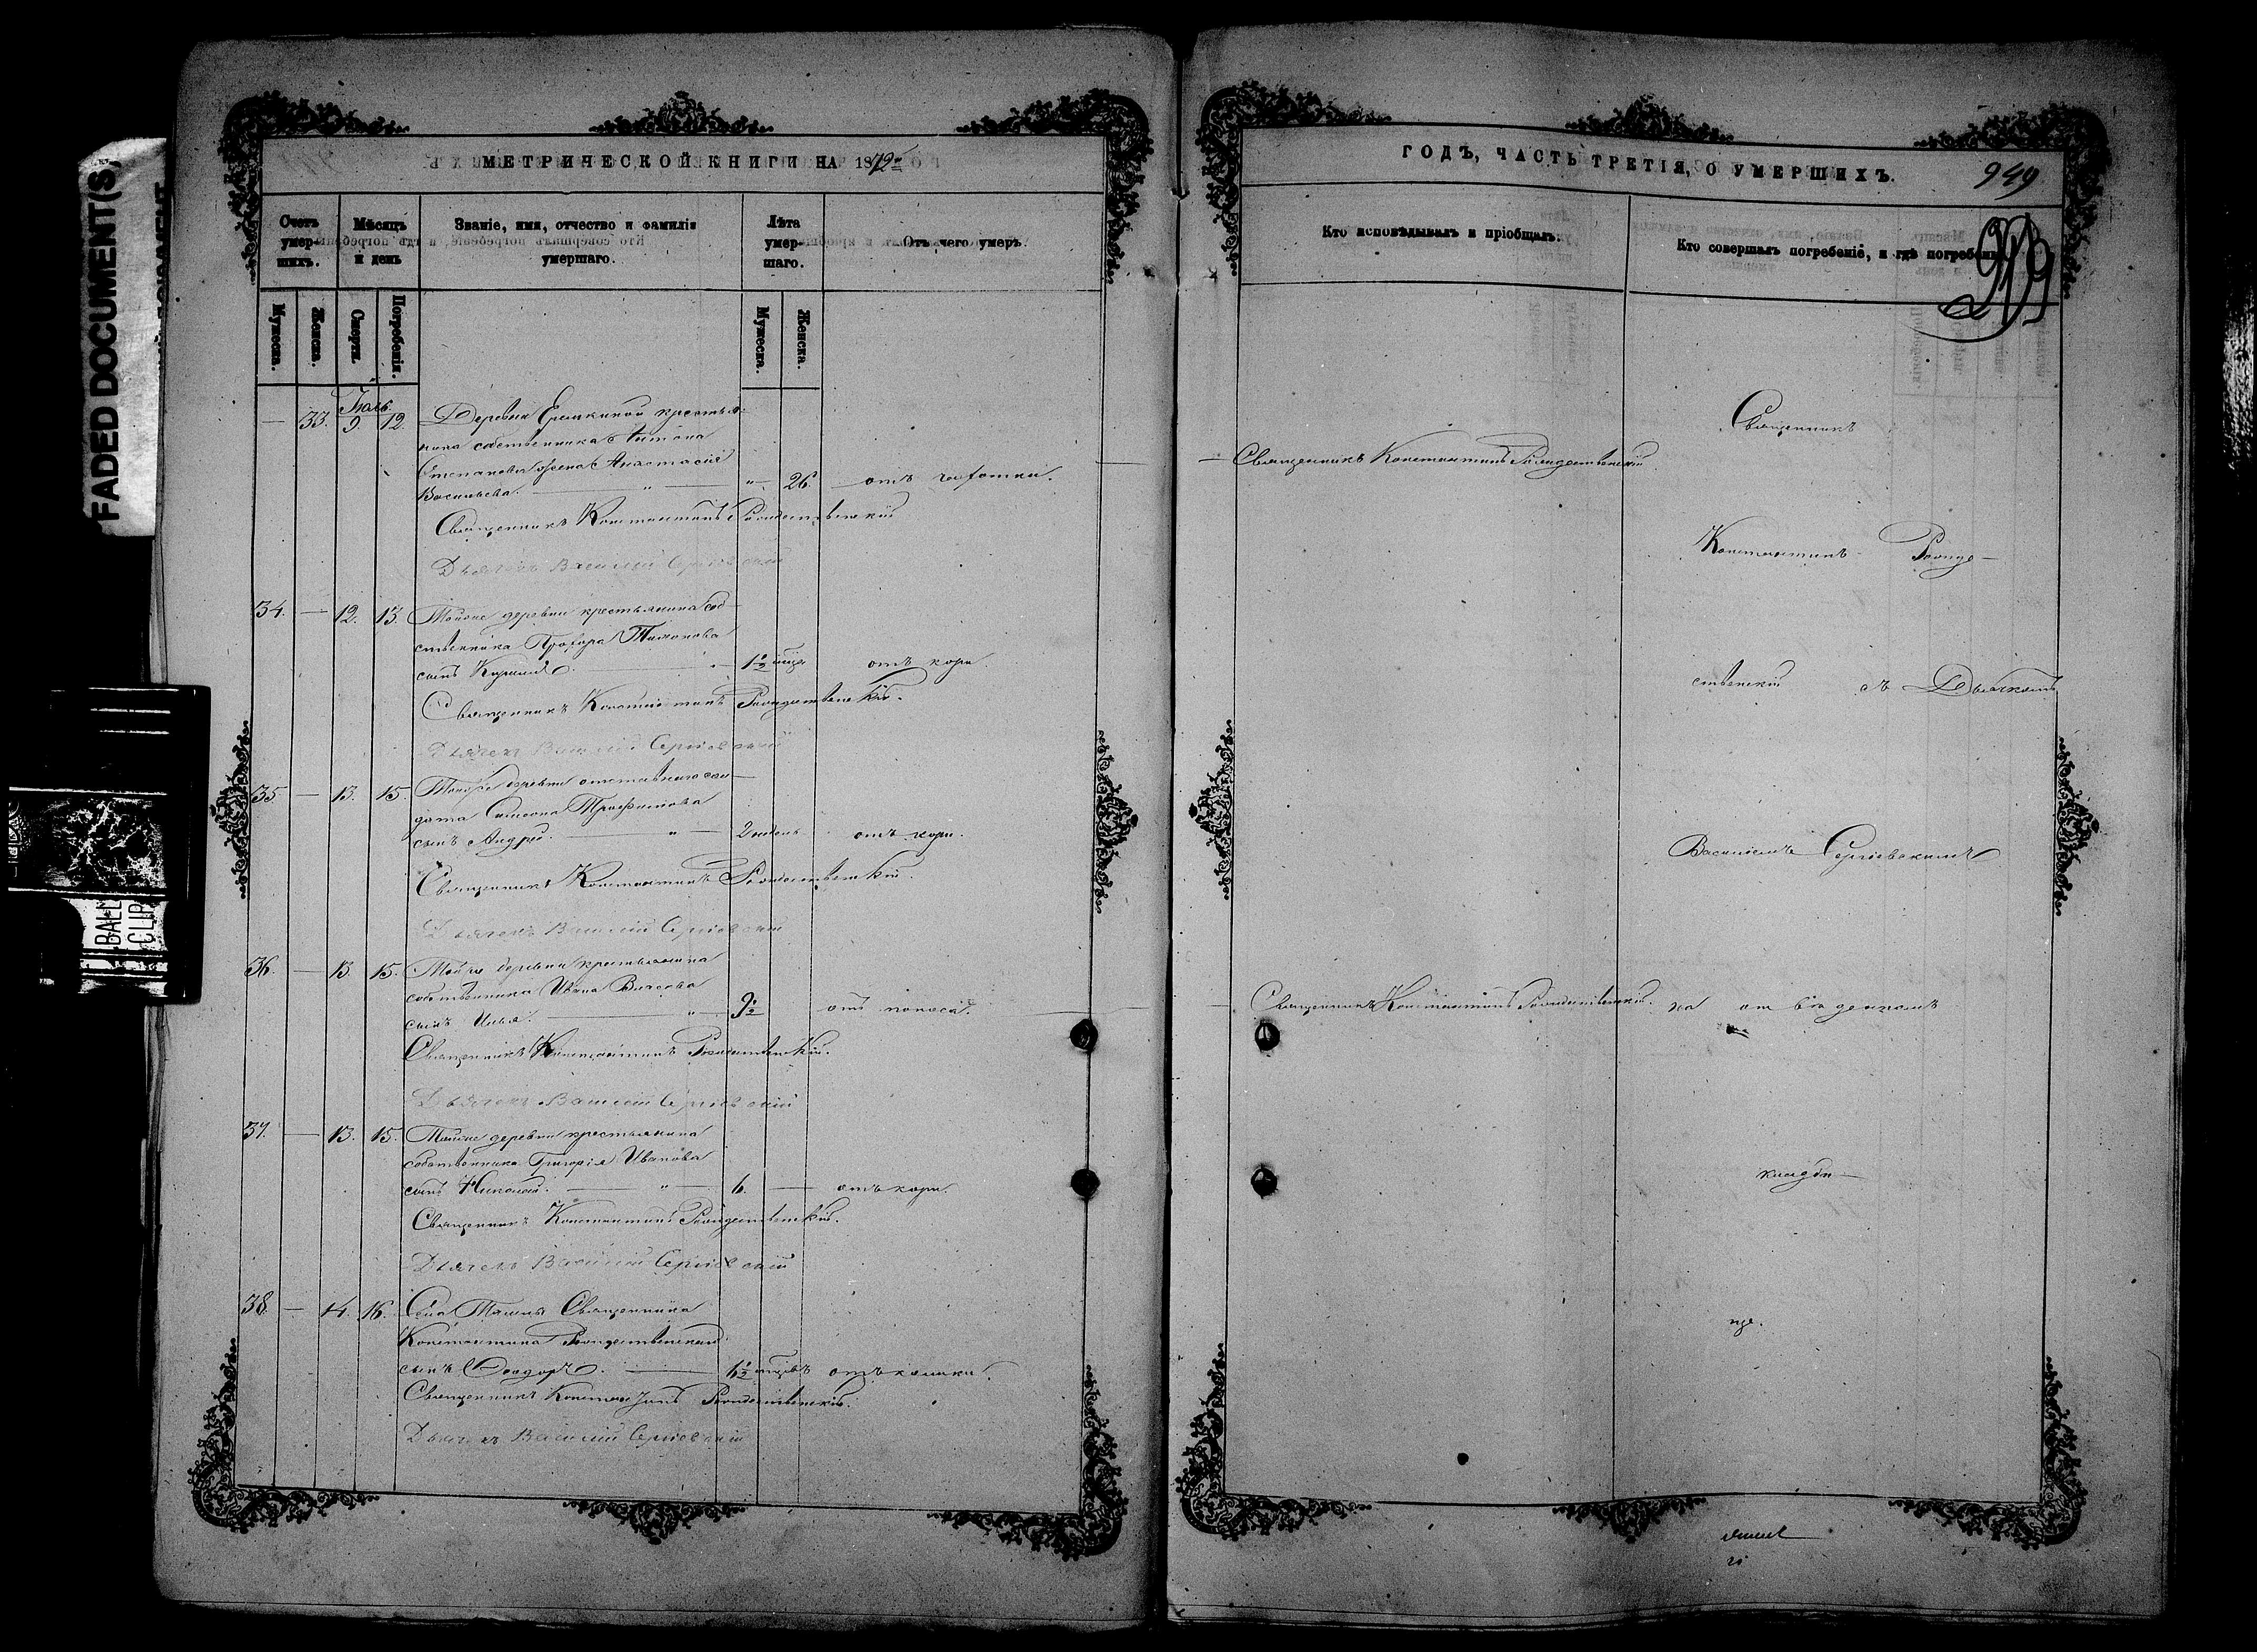 МЕТРИЧЕСКОЙ КНИГИ НА 1872
Счетъ умер-шихъ.
Мѣсяцъ и день
Званіе, имя, отчество и фамилія умершаго.
Лѣта умер-шаго.
Отъ чего умеръ.
Мужеска.
Женска.
Смерти.
Погребенія.
Мужеска.
Женска.
— 33. 9. 12. Деревни Еремкиной крестья-
нина собственника Антона
Степанова жена Анастасія
Васильева. — " — " 26. отъ чахотки.
Священникъ Константинъ Рождественскій
Дьячекъ Василій Сергіевскій
34. — 12. 13. Тойже деревни крестьянина соб-
ственника Прохора Тимонова
сынъ — " — 1½ отъ кори.
Священникъ Константинъ Рождественскій.
Дьячекъ Василій Сергіевскій
35 — 13. 15. Тойже деревни отставнаго сол-
дата Симеона Трофимова
сынъ Андрей. — " — 2 отъ кори.
Священникъ Константинъ Рождественскій.
Дьячекъ Василій Сергіевскій
36. — 13. 15. Тойже деревни крестьянина
собственника Ивана
сынъ Илья. — " — 9½ отъ поноса.
Священникъ Константинъ Рождественскій.
Дьячекъ Василій Сергіевскій
37. — 13. 15. Тойже деревни крестьянина
собственника Григорія Иванова
сынъ Николай. — " — 6. — отъ кори.
Священникъ Константинъ Рождественскій.
Дьячекъ Василій Сергіевскій
38. — 14. 16. Села Священника
Константина Рождественскаго
сынъ Ѳеодоръ. — 1½
Священникъ Константинъ Рождественскій.
Дьячекъ Василій Сергіевскій
ГОДЪ, ЧАСТЬ ТРЕТІЯ, О УМЕРШИХЪ.
949
Кто исповѣдывалъ и пріобщалъ.
Кто совершалъ погребеніе, и гдѣ погребены.
Священникъ
Священникъ Константинъ Рождественскій
Константинъ Рожде-
ственскій съ Дьячкомъ
Василіемъ Сергіевскимъ
Священникъ Константинъ Рождественскій. на отведенномъ
кладби-
щѣ.
FADED DOCUMENT(S)
BALL
CLIP